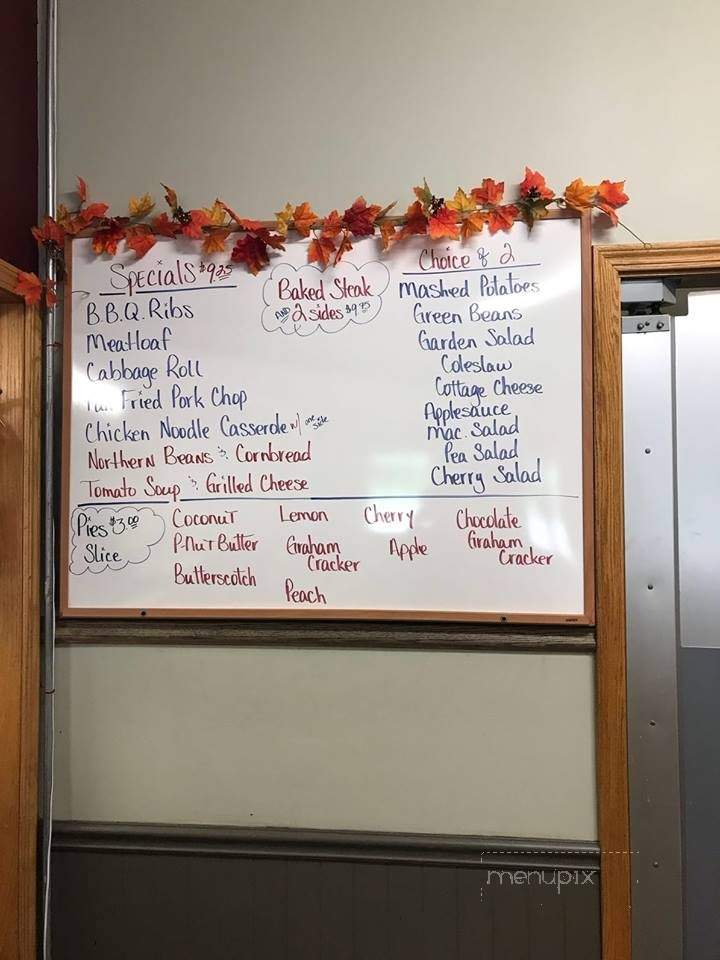 Specials $9.25
B.B.Q. Ribs
Meatloaf
Cabbage Roll
Fried Pork Chop
Chicken Noodle Casserole w/ one side
Northern Beans & Cornbread
Tomato Soup & Grilled Cheese
Baked Steak
AND 2 sides $9.95
Choice of 2
Mashed Potatoes
Green Beans
Garden Salad
Coleslaw
Cottage Cheese
Applesauce
Mac. Salad
Pea Salad
Cherry Salad
Pies $3.00
Slice
Coconut
P-Nut Butter
Butterscotch
Lemon
Graham
Cracker
Peach
Cherry
Apple
Chocolate
Graham
Cracker
menupix